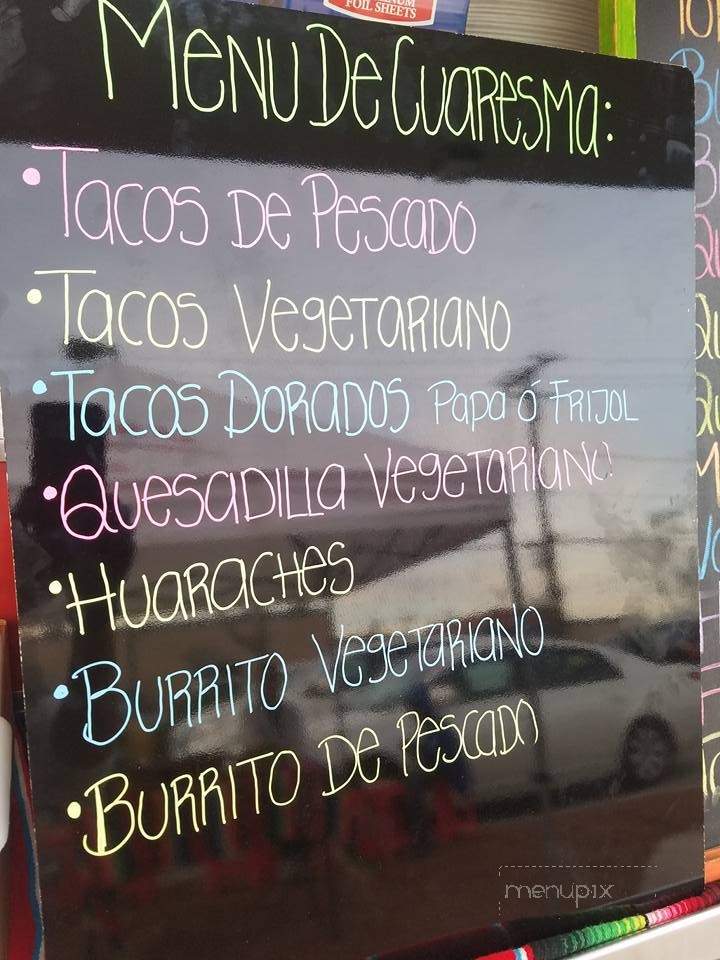 FOIL SHEETS
MENU DE CUARESMA:
•TACOS DE PESCADO
•TACOS VEGETARIANO
•TACOS DORADOS PAPA Ó FRIJOL
•QUESADILLA VEGETARIANO
•HUARACHES
•BURRITO VEGETARIANO
•BURRITO DE PESCADO
menupix